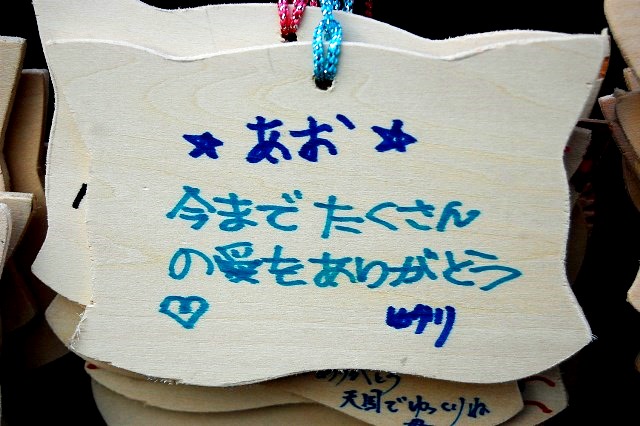 ☆ あお ☆
今までたくさん
の愛をありがとう
♡
ありがとう
天国でゆっくりね